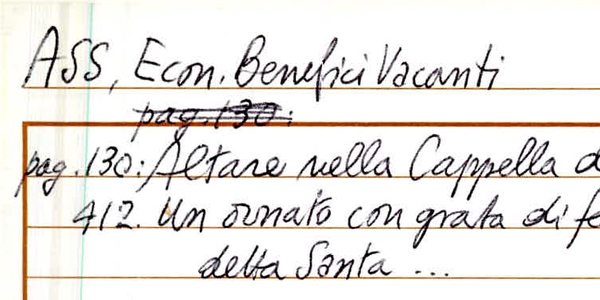 ASS, Econ. Benefici Vacanti
pag. 130:
pag. 130: Altare nella Cappella d
412. Un ornato con grata di fe
detta Santa ...